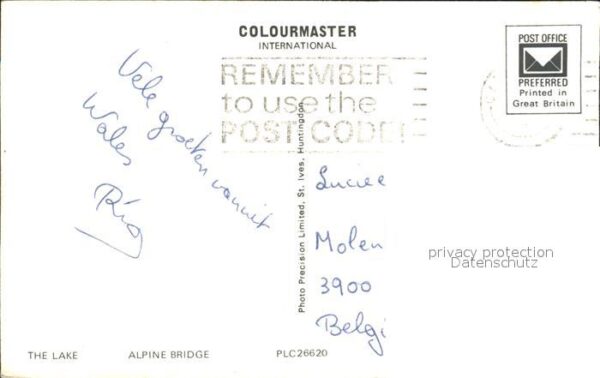 COLOURMASTER
INTERNATIONAL
POST OFFICE
PREFERRED
Printed in
Great Britain
REMEMBER
to use the
POST CODE!
Vele groeten vanuit
Wales
Photo Precision Limited, St. Ives, Huntingdon
Luciee
Molen
3900
Belgi
privacy protection
Datenschutz
THE LAKE
ALPINE BRIDGE
PLC26620